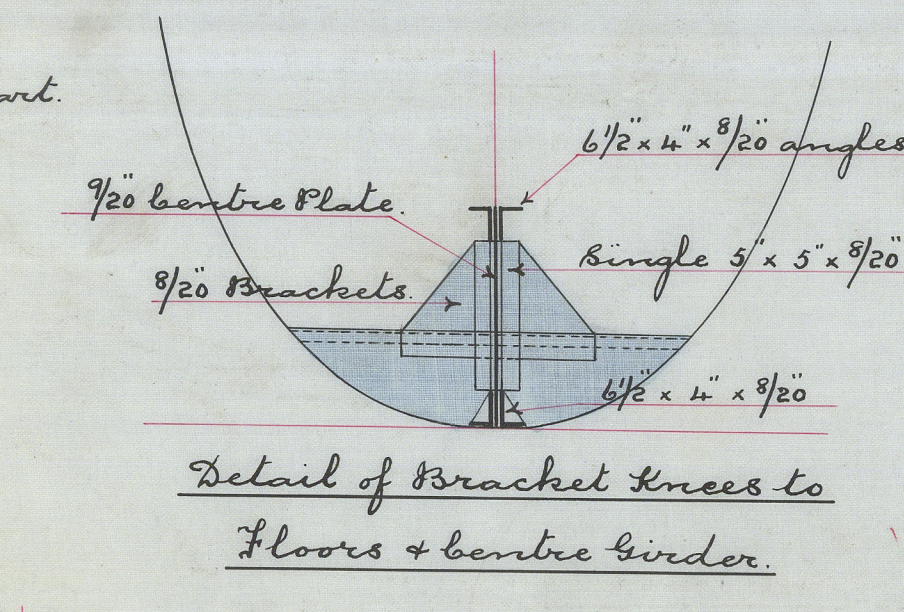 art.
6 1/2" x 4" x 8/20" angles
9/20" Centre Plate.
Single 5" x 5" x 8/20"
8/20" Brackets.
6 1/2" x 4" x 8/20"
Detail of Bracket Knees to
Floors & Centre Girder.